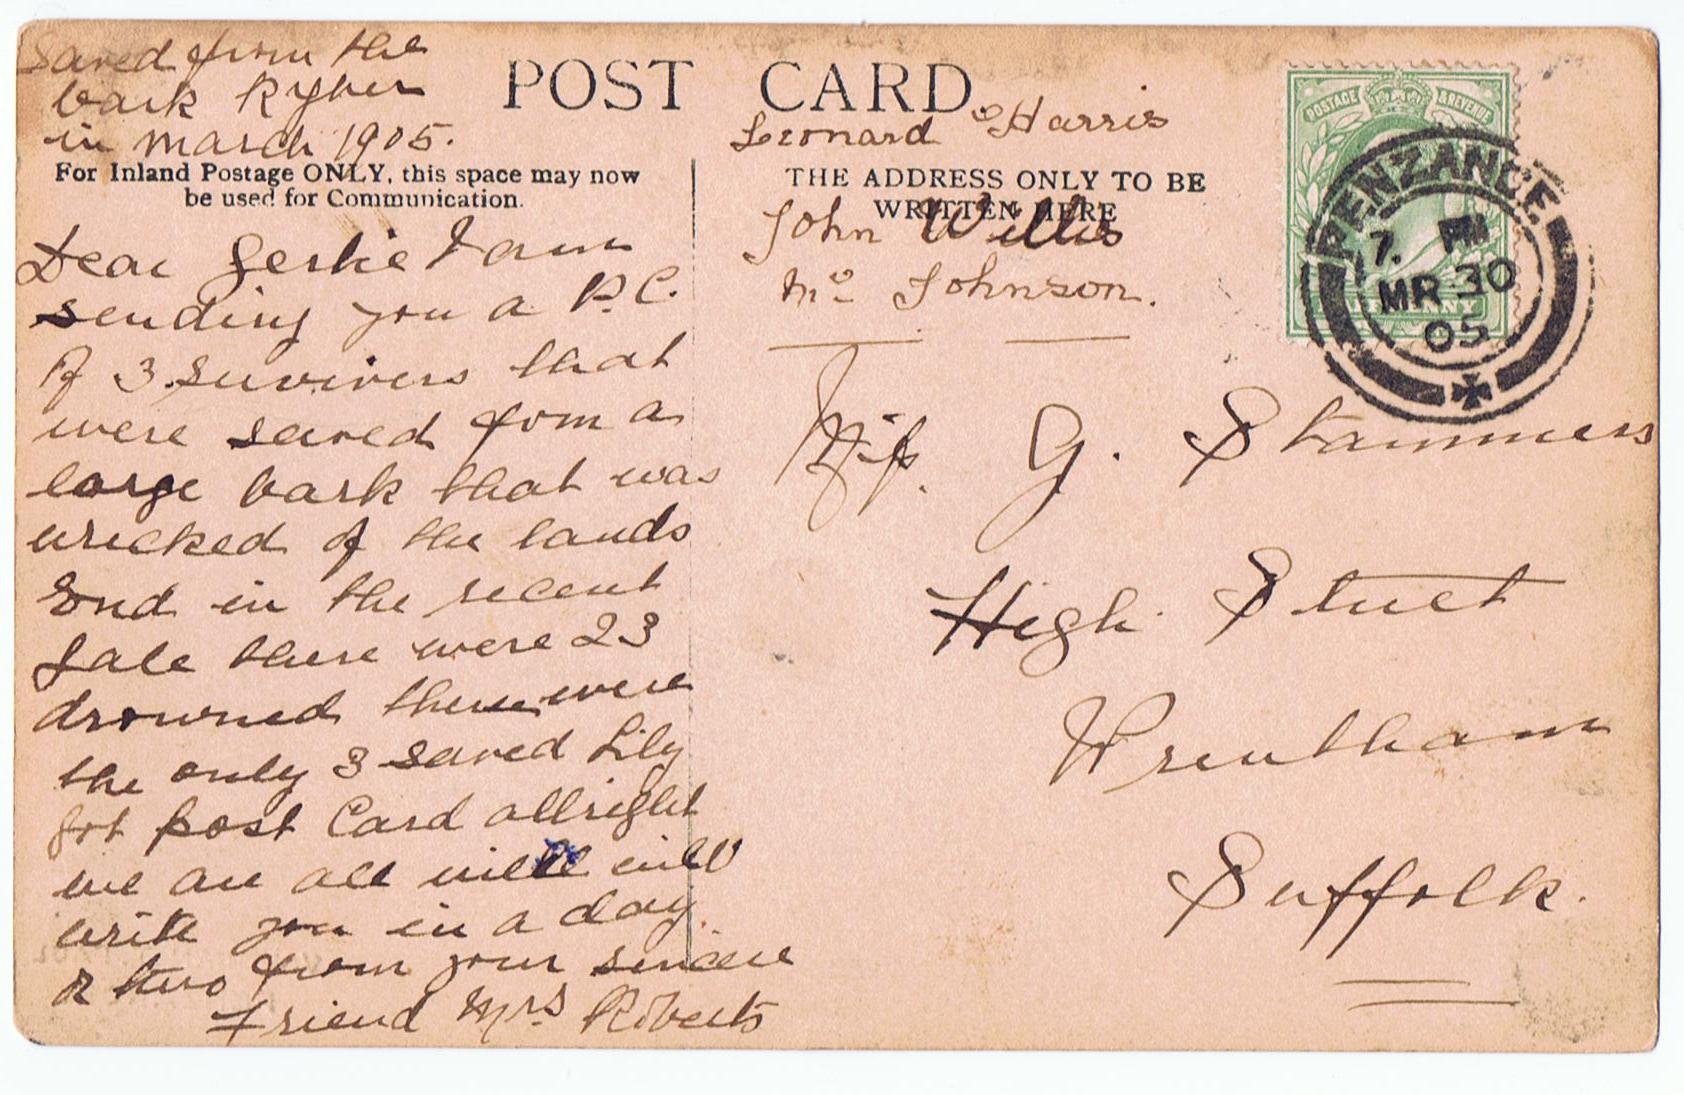 Saved from the
bark Kyber
in March 1905.
POST CARD
For Inland Postage ONLY, this space may now
be used for Communication.
Dear Gertie I am
sending you a P.C.
of 3 survivers that
were saved from a
large bark that was
wrecked of the lands
End in the recent
gale there were 23
drowned these were
the only 3 saved Lily
got post Card allright
we are all well will
write you in a day
or two from your sincere
Friend Mrs Roberts
Leonard Harris
THE ADDRESS ONLY TO BE
WRITTEN HERE
John Willis
Mc Johnson.
Miss. G. Stammers
High Street
Wrentham
Suffolk.
POSTAGE & REVENUE
PENZANCE
7. PM
MR 30
05